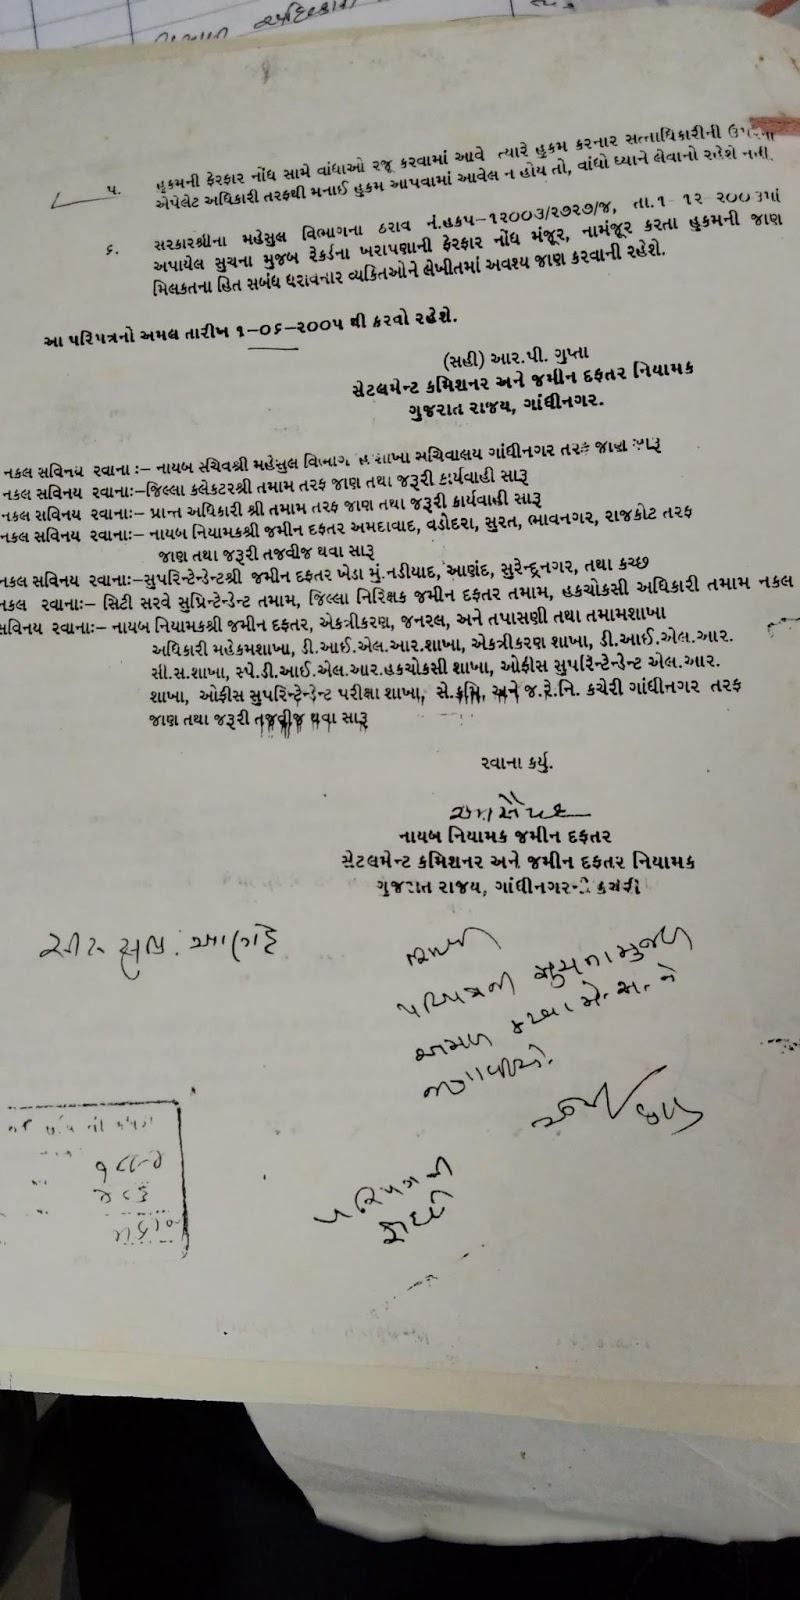 ૫. હુકમની ફેરફાર નોંધ સામે વાંધાઓ રજૂ કરવામાં આવે ત્યારે હુકમ કરનાર સત્તાધિકારીની ઉપરના
એપેલેટ અધિકારી તરફથી મનાઈ હુકમ આપવામાં આવેલ ન હોય તો, વાંધો ધ્યાને લેવાનો રહેશે નહી.
૬. સરકારશ્રીના મહેસુલ વિભાગના ઠરાવ નં.હકપ-૧૨૦૦૩/૨૭૨૭/જ, તા.૧-૧૨-૨૦૦૩માં
અપાયેલ સુચના મુજબ રેકર્ડના ખરાપણાની ફેરફાર નોંધ મંજૂર, નામંજૂર કરતા હુકમની જાણ
મિલકતના હિત સબંધ ધરાવનાર વ્યકિતઓને લેખીતમાં અવશ્ય જાણ કરવાની રહેશે.
આ પરિપત્રનો અમલ તારીખ ૧-૦૬-૨૦૦૫ થી કરવો રહેશે.
(સહી) આર.પી. ગુપ્તા
સેટલમેન્ટ કમિશનર અને જમીન દફતર નિયામક
ગુજરાત રાજય, ગાંધીનગર.
નકલ સવિનય રવાના :- નાયબ સચિવશ્રી મહેસુલ વિભાગ હ શાખા સચિવાલય ગાંધીનગર તરફ જાણ સારૂ
નકલ સવિનય રવાના:-જિલ્લા કલેકટરશ્રી તમામ તરફ જાણ તથા જરૂરી કાર્યવાહી સારૂ
નકલ સવિનય રવાના:- પ્રાન્ત અધિકારી શ્રી તમામ તરફ જાણ તથા જરૂરી કાર્યવાહી સારૂ
નકલ સવિનય રવાના:- નાયબ નિયામકશ્રી જમીન દફતર અમદાવાદ, વડોદરા, સુરત, ભાવનગર, રાજકોટ તરફ
જાણ તથા જરૂરી તજવીજ થવા સારૂ
નકલ સવિનય રવાના:-સુપરિન્ટેન્ડેન્ટશ્રી જમીન દફતર ખેડા મું.નડીયાદ, આણંદ, સુરેન્દ્રનગર, તથા કચ્છ
નકલ રવાના:- સિટી સરવે સુપ્રિન્ટેન્ડેન્ટ તમામ, જિલ્લા નિરિક્ષક જમીન દફતર તમામ, હકચોકસી અધિકારી તમામ નકલ
સવિનય રવાના:- નાયબ નિયામકશ્રી જમીન દફતર, એકત્રીકરણ, જનરલ, અને તપાસણી તથા તમામશાખા
અધિકારી મહેકમશાખા, ડી.આઈ.એલ.આર.શાખા, એકત્રીકરણ શાખા, ડી.આઈ.એલ.આર.
સી.સ.શાખા, સ્પે.ડી.આઈ.એલ.આર.હકચોકસી શાખા, ઓફીસ સુપરિન્ટેન્ડેન્ટ એલ.આર.
શાખા, ઓફીસ સુપરિન્ટેન્ડેન્ટ પરીક્ષા શાખા, સે.કમિ. અને જ.રે.નિ. કચેરી ગાંધીનગર તરફ
જાણ તથા જરૂરી તજવીજ થવા સારૂ
રવાના કર્યુ.
નાયબ નિયામક જમીન દફતર
સેટલમેન્ટ કમિશનર અને જમીન દફતર નિયામક
ગુજરાત રાજય, ગાંધીનગરની કચેરી
પરિપત્રની સુચના મુજબ
અમલ કરવા મે.સ. ને
જણાવીએ.
પરિપત્રની
ફાઈલે